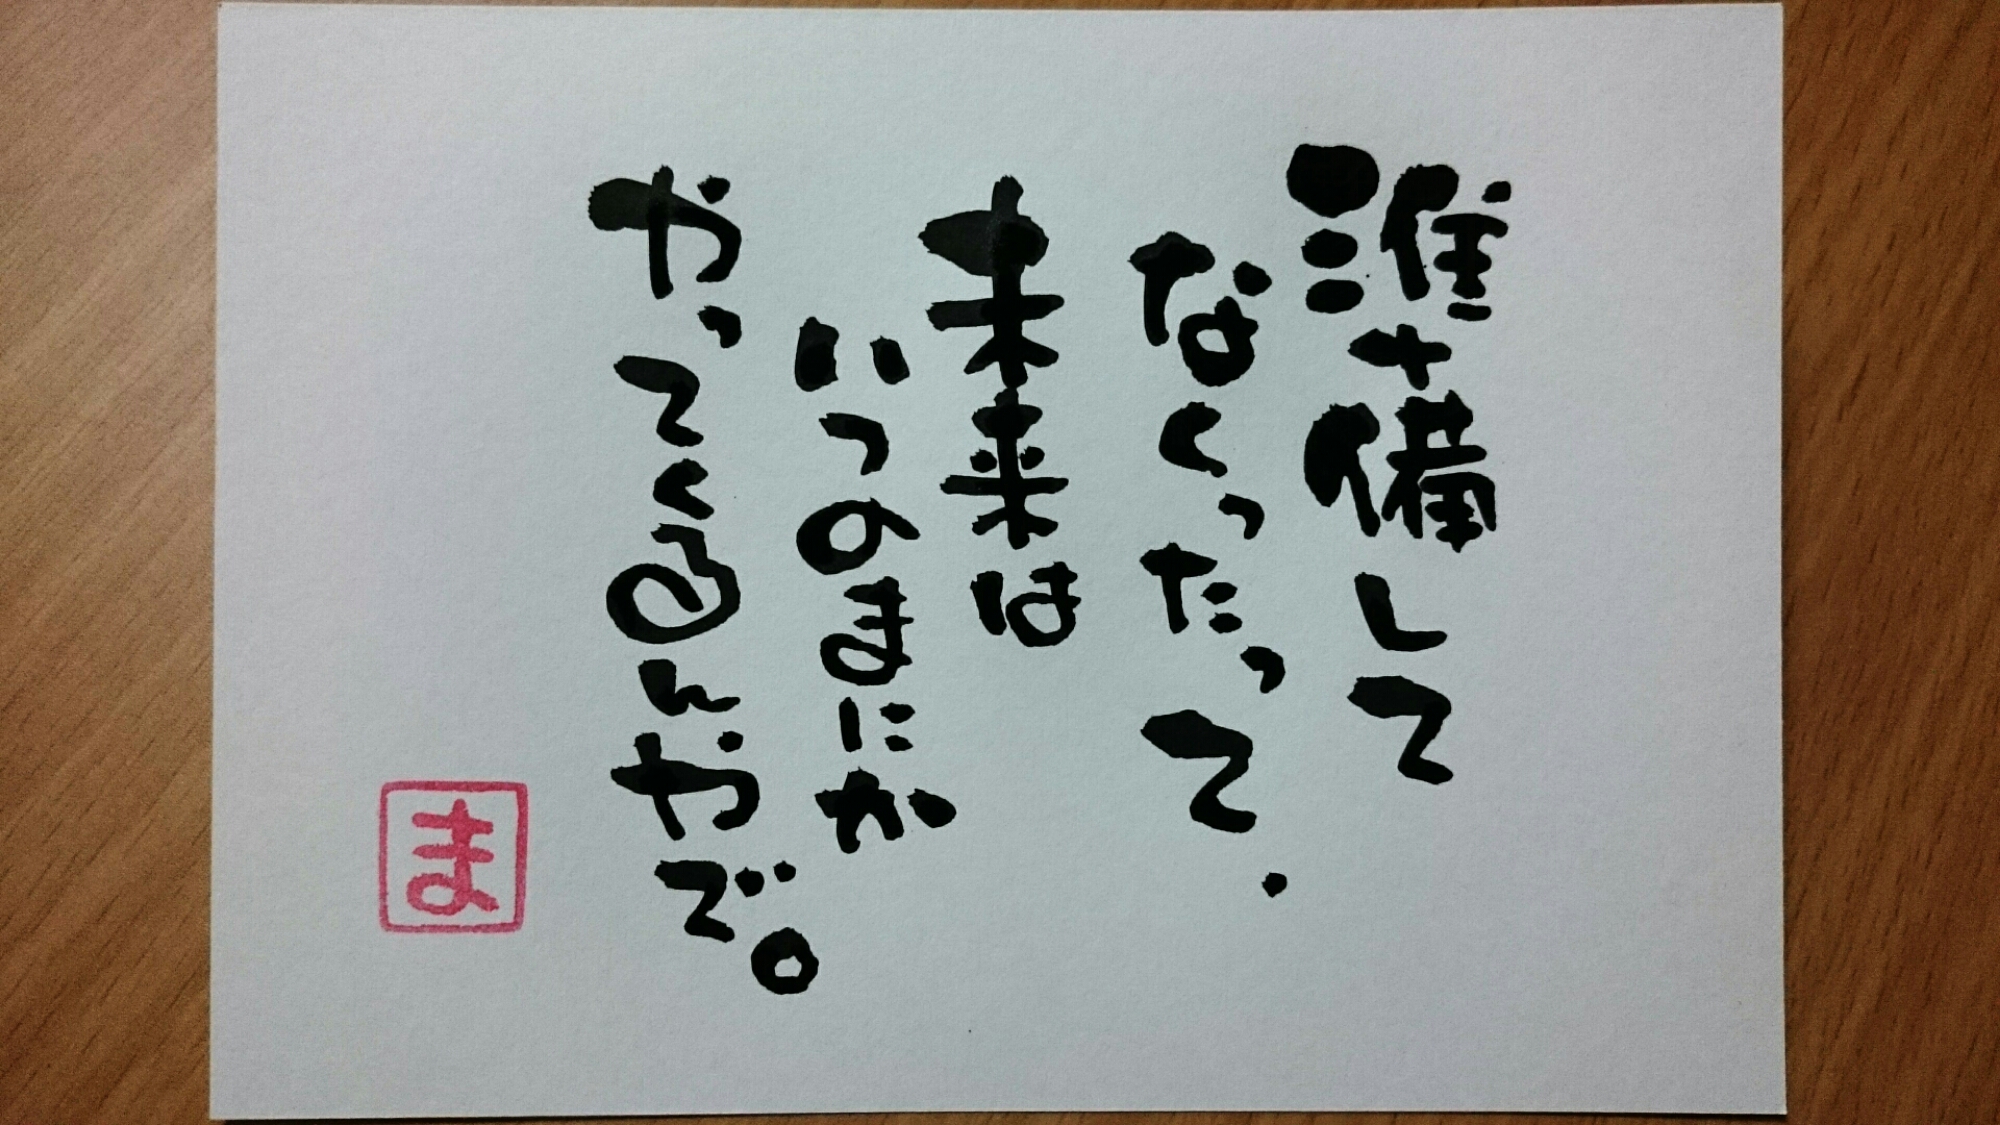 準備して
なくったって、
未来は
いつのまにか
やってくるんやで。
ま